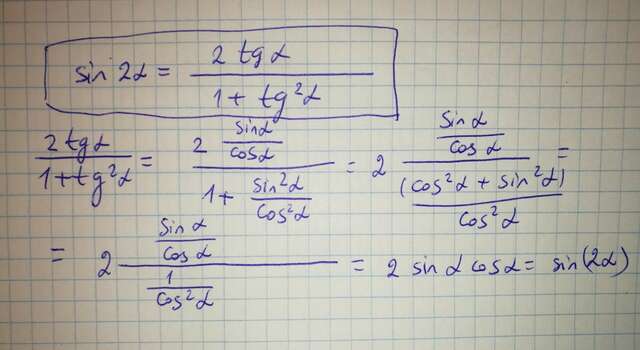 sin 2α = \frac{2 tg α}{1 + tg²α}
\frac{2 tg α}{1 + tg²α} = \frac{2 \frac{sin α}{cos α}}{1 + \frac{sin²α}{cos²α}} = 2 \frac{\frac{sin α}{cos α}}{\frac{(cos²α + sin²α)}{cos²α}} =
= 2 \frac{\frac{sin α}{cos α}}{\frac{1}{cos²α}} = 2 sin α cos α = sin(2α)